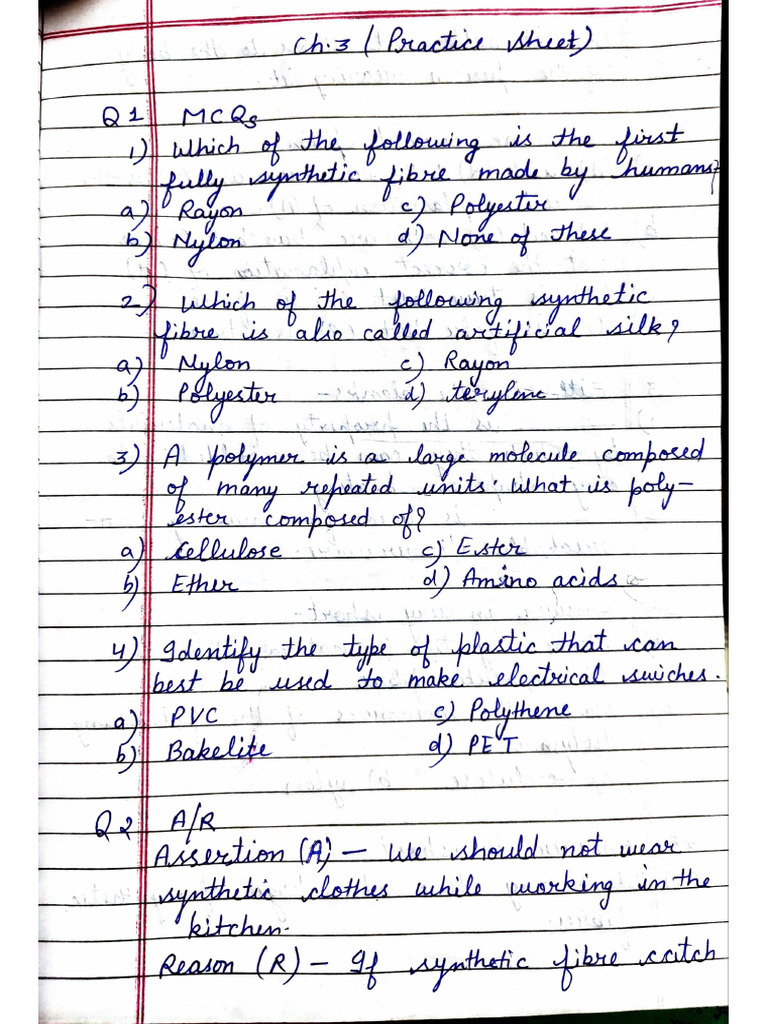 Ch.3 (Practice sheet)
Q1 MCQs
1) Which of the following is the first
fully synthetic fibre made by humans?
a) Rayon c) Polyester
b) Nylon d) None of these
2) Which of the following synthetic
fibre is also called artificial silk?
a) Nylon c) Rayon
b) Polyester d) terylene
3) A polymer is a large molecule composed
of many repeated units. What is poly-
ester composed of?
a) Cellulose c) Ester
b) Ether d) Amino acids
4) Identify the type of plastic that can
best be used to make electrical swiches.
a) PVC c) Polythene
b) Bakelite d) PET
Q2 A/R
Assertion (A) – We should not wear
synthetic clothes while working in the
kitchen.
Reason (R) – If synthetic fibre catch